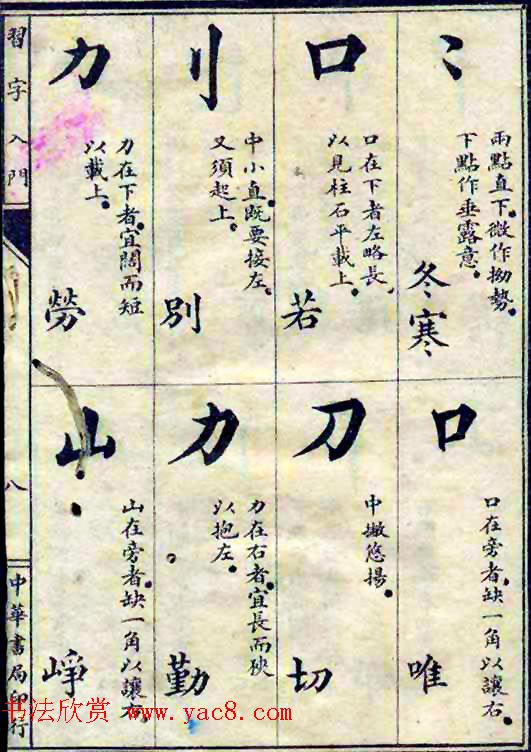 冫
兩點直下微作拗勢。
下點作垂露意。
冬寒
口
口在下者左略長
以見柱石平載上。
若
刂
中小直既要接左。
又須起上。
別
力
力在下者宜闊而短
以載上。
勞
口
口在旁者缺一角以讓右。
唯
刀
中撇悠揚。
切
力
力在右者宜長而
以抱左。
勤
山
山在旁者缺一角以讓右
崢
習字入門
八
中華書局印行
书法欣赏 www.yac8.com